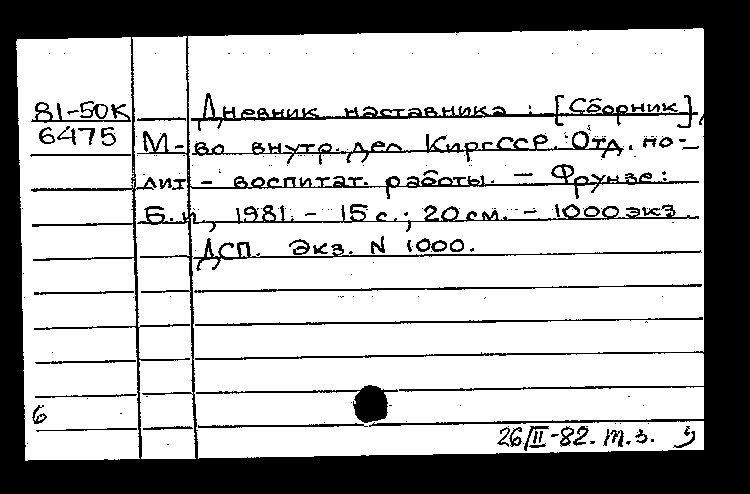 81-50К Дневник наставника : [Сборник],
6475 М-во внутр. дел КиргССР. Отд. по-
лит-воспитат. работы. — Фрунзе:
Б.и, 1981. - 15 с.; 20 см. - 1000 экз.
ДСП. Экз. N 1000.
6
26/II-82. т.з.